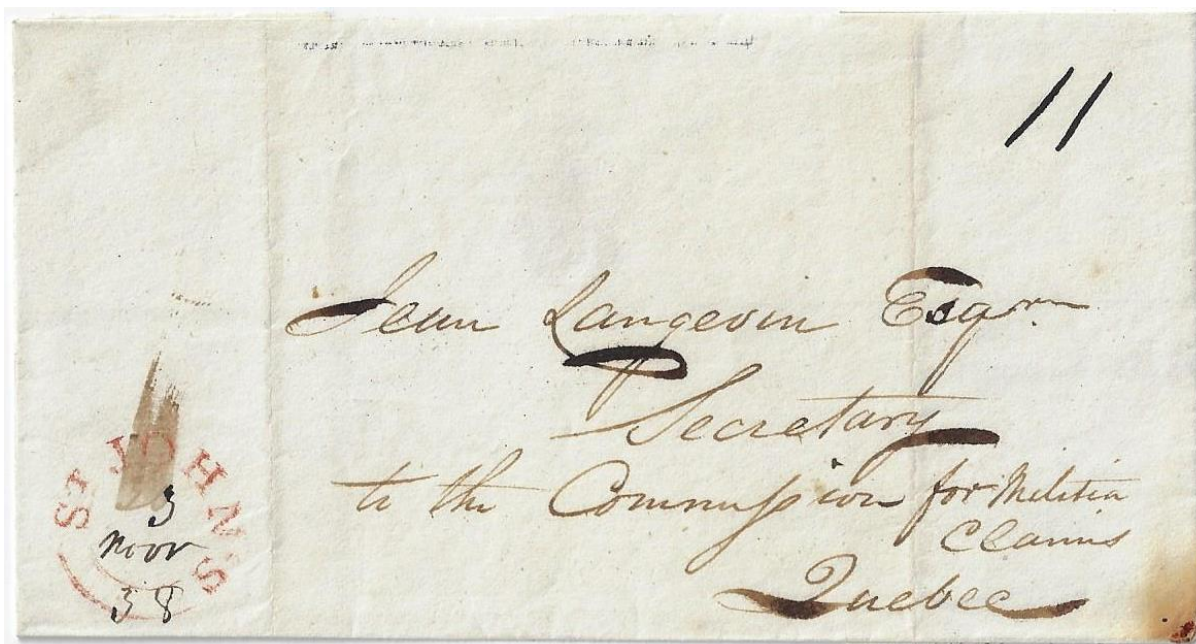 11
Jean Langevin Esqre
Secretary
to the Commission for Militia
Claims
Quebec
ST JOHN'S
3
Novr
38